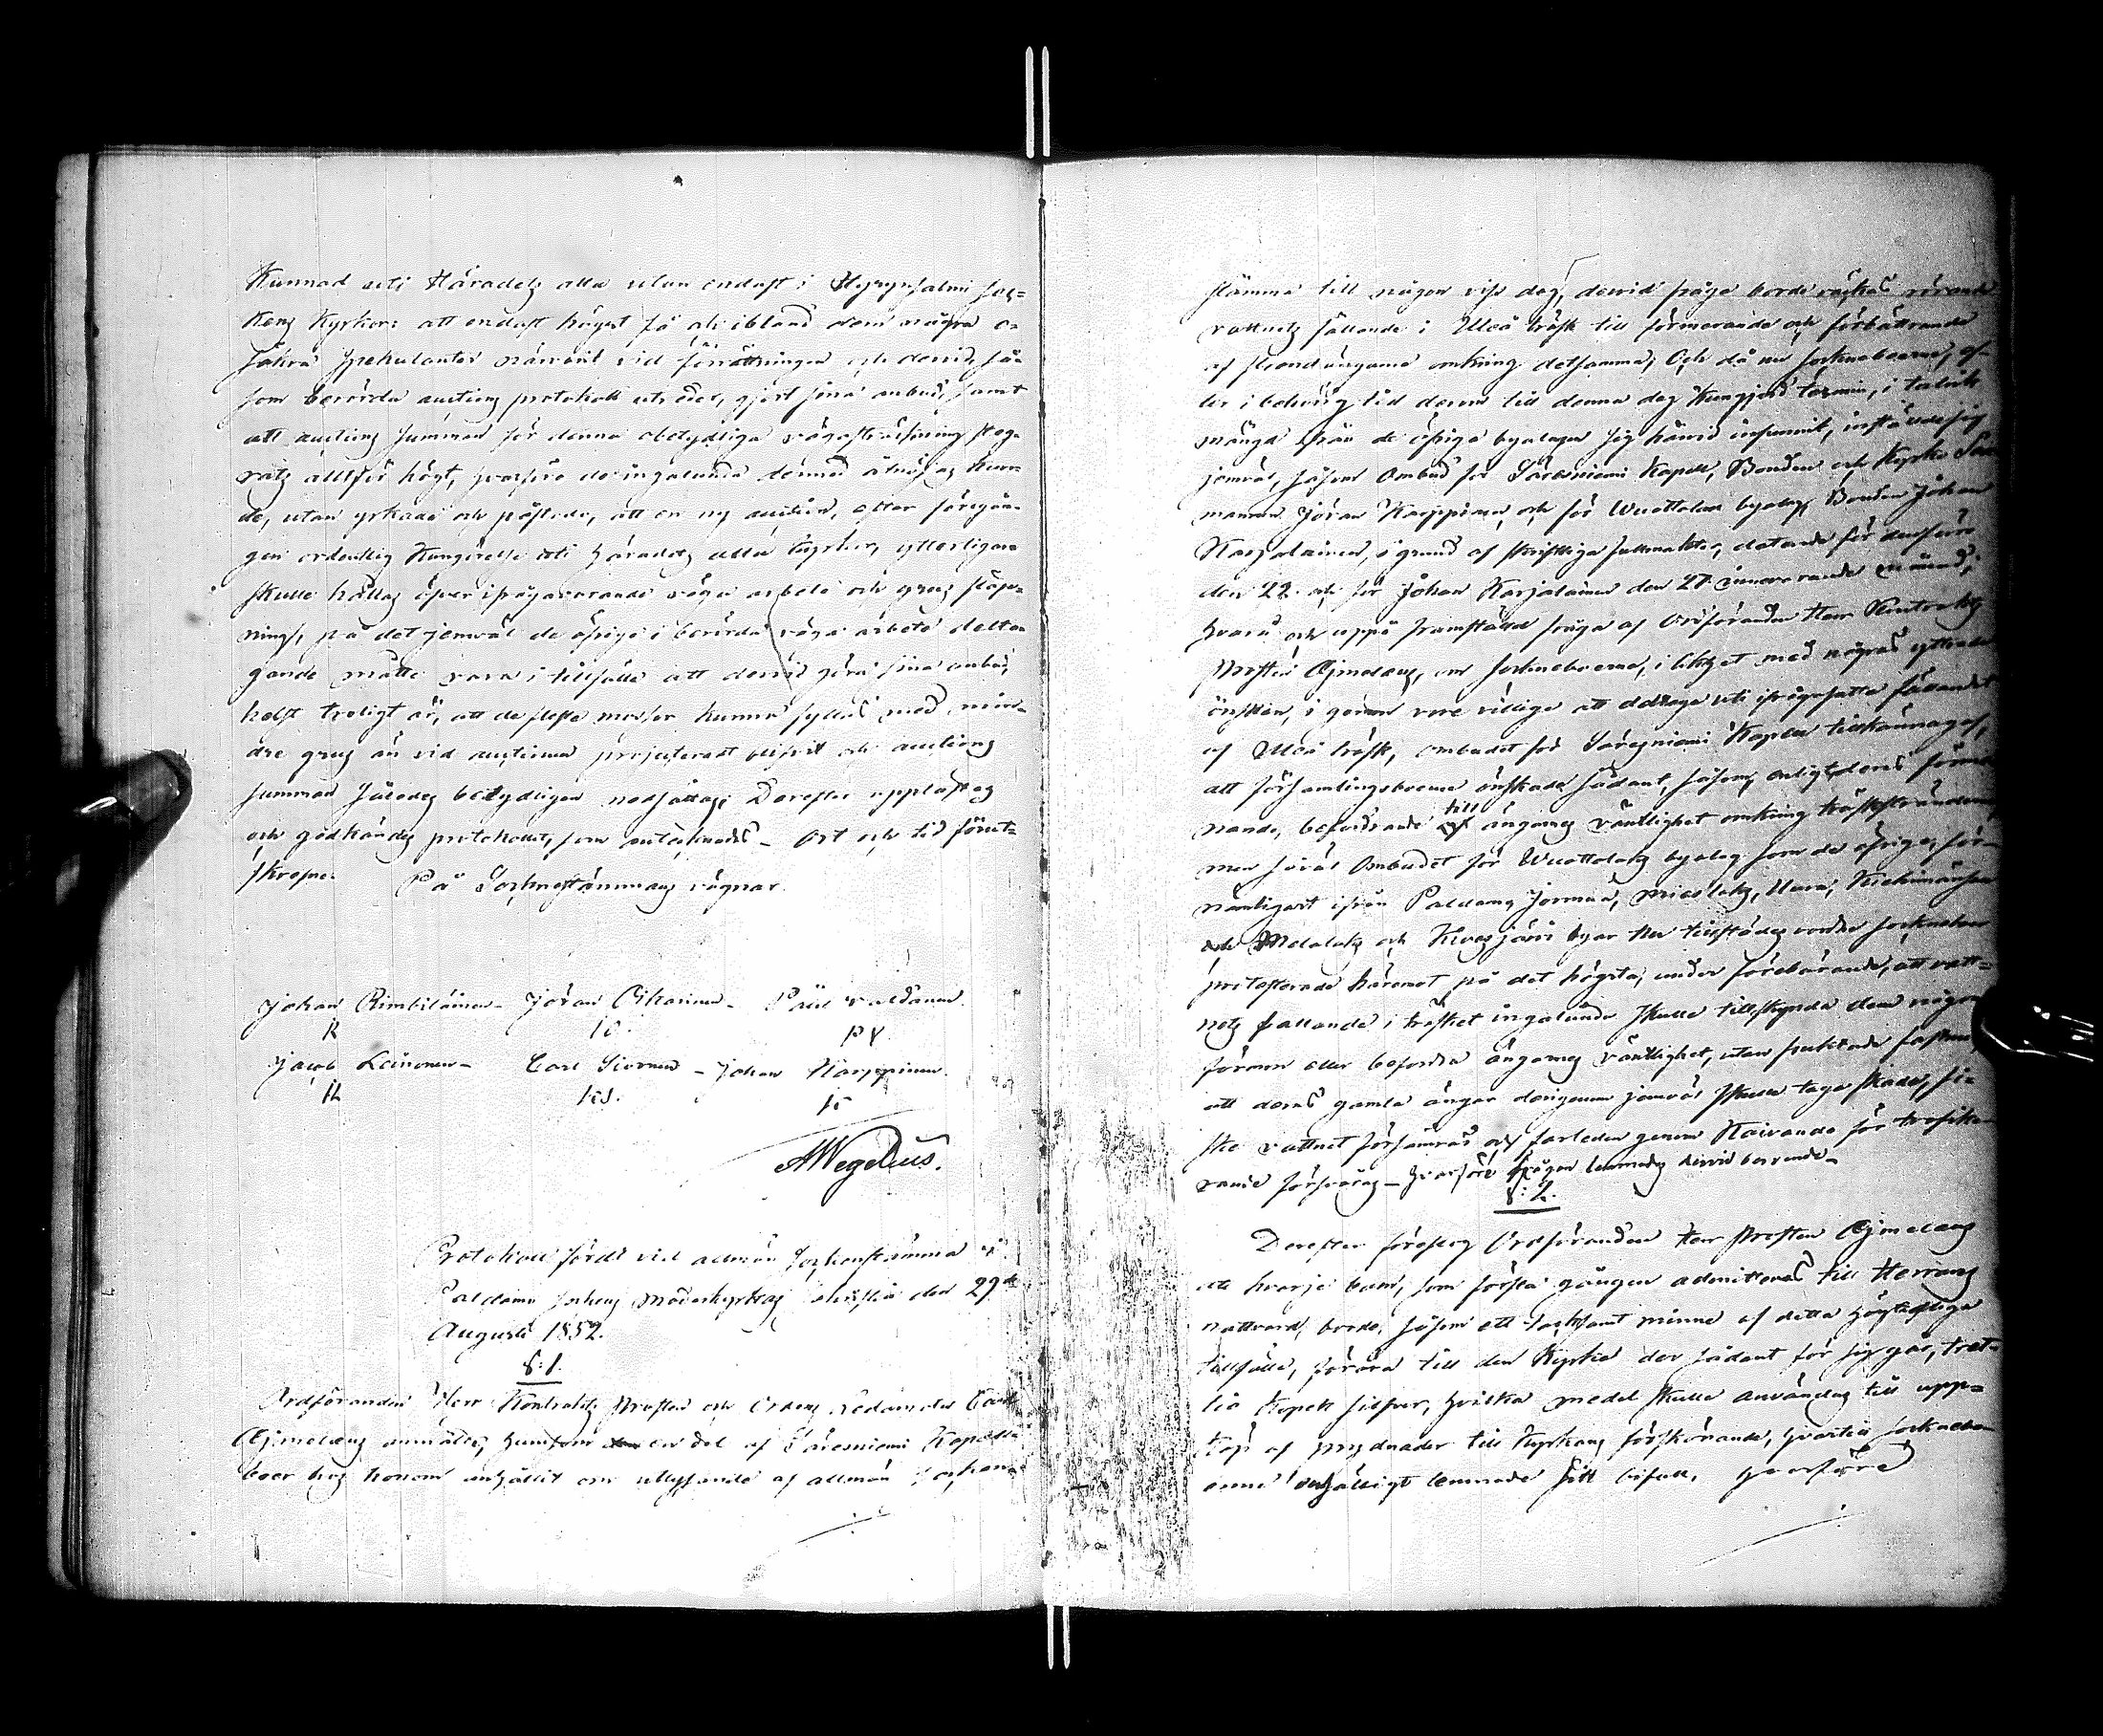 Kunnad uti Häradets alla utan endast i Hyrynsalmi soc=
kens Kyrkor: att endast högst få och ibland dem några o=
säkra spekulanter närvarit vid förrättningen och dervid, så=
som berörda auctions protokoll utvisar, gjort sina anbud, samt
att auctions summan för denna obetydliga vägaförbättring steg-
rats alltför högt, hvarföre de ingalunda dermed åtnöjas kun=
de, utan yrkade och påstodo, att en ny auction, efter föregån=
gen ordentlig Kungörelse uti häradets alla Kyrkor, ytterligare
skulle hållas öfver ifrågavarande väga arbete och grus släp=
nings, på det jemväl de öfrige i berörda väga arbete delta=
gande måtte vara i tillfälle att dervid göra sina anbud,
helst troligt är, att de fleste mossar kunna fyllas med min=
dre grus än vid auctionen projecteradt blifvit och auctions
summan således betydligen nedsättas; Derefter upplästes
och godkändes protokollet, som undertecknades – Ort och tid förut=
skrefne. På Sockenstämmans vägnar.
Johan Rimbiläinen – Jöran Pikarinen – Påhl Valdanen
Jacob Leinonen – Carl Siernen – Johan Karppinen
AWegelius.
Protokoll fördt vid allmän Sockenstämma i
Paldamo sockens Moderkyrkas sakristia den 29de
Augusti 1852.
§: 1.
Ordföranden Herr Kontrakts Prosten och Ordens Ledamoten Carl
Ajmelæus anmälte, hurusom en del af Säresniemi Kapell
boer hos honom anhållit om utlysande af allmän socken=
stämma till någon viss dag, dervid fråga borde väckas rörande
vattnets fällande i Uleå träsk till förmerande och förbättrande
af strandängarne omkring detsamma; Och då nu sockneboerne, ef=
ter i behörig tid derom till denna dag Kungjord termin, i talrik
mängd från de öfrige byalagen sig härvid infunnit, inställde sig
jemväl, såsom Ombud för Säresniemi Kapell, Bonden och Kyrko Vär
mannen Jöran Karppinen, och för Wuottolaks byalag Bonden Johan
Karjalainen, i grund af skriftliga fullmakter, daterade för den förre
den 22 och för Johan Karjalainen den 27 innevarande månad;
hvarå och uppå framställd fråga af Ordföranden Herr Kontrakts
Prosten Ajmelæus, om sockneboerne, i likhet med några yttrade
önskan, i gemen vore villige att deltaga uti ifrågasatte fällandet
af Uleå träsk, ombudet för Säresniemi Kapell tillkännagaf,
att församlingsboerne önskade sådant, såsom, enligt deras förme
nande, befordrande till ängarnes växtlighet omkring träskstränderne,
men såväl Ombudet för Wuottolaks byalag som de öfrige, för=
nämligast ifrån Paldamo, Jormua, Mieslaks, Uura, Kiehimänsuu
och Melalaks och Kivesjärvi byar här tillstädes vordne sockneboer
protesterade häremot på det högsta, under förebärande, att vatt=
nets fallande i träsket ingalunda skulle tillskynda dem någon
förmon eller befordra ängarnes växtlighet, utan fruktade fastmer,
att deras gamla ängar derigenom jemväl skulle taga skada, fi=
ske vattnet försämras och farleden genom Kaivando för trafike
rande försvåras – hvarföre frågan lemnades dervid beroende –
§: 2.
Derefter föreslog Ordföranden Herr Prosten Ajmelæus
att hvarje barn, som första gången admitteras till Herrans
nattvard, borde, såsom ett tacksamt minne af detta högtidliga
tillfälle, förära till den Kyrka der sådant för sig går, tret=
tio kopek silfver, hvilka medel skulle användas till upp=
köp af prydnader till Kyrkans förskönande, hvartill sockneboe
erne enhälligt lemnade sitt bifall, hvarföre